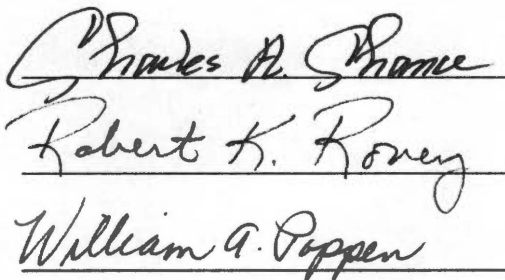 Charles A. Chance
Robert K. Roney
William A. Poppen